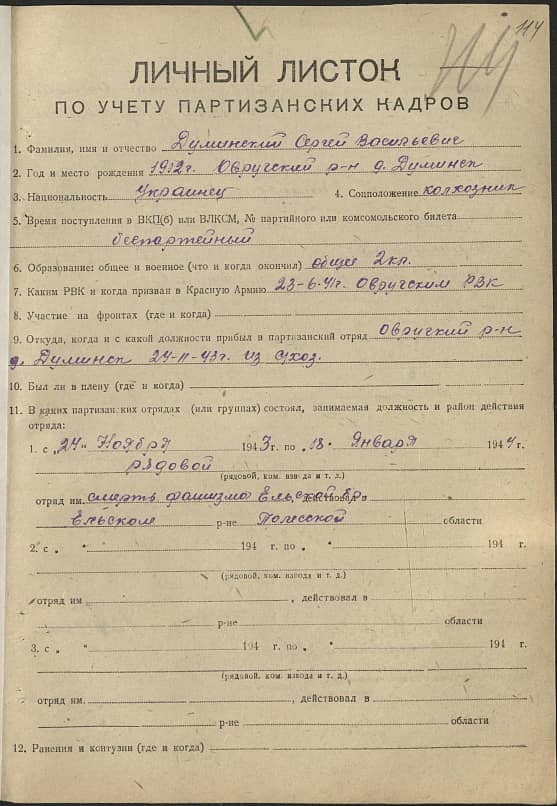 114
ЛИЧНЫЙ ЛИСТОК
ПО УЧЕТУ ПАРТИЗАНСКИХ КАДРОВ
1. Фамилия, имя и отчество Думинский Сергей Васильевич
2. Год и место рождения 1912г. Овручский р-н д. Думинск
3. Национальность Украинец 4. Соцположение колхозник
5. Время поступления в ВКП(б) или ВЛКСМ, № партийного или комсомольского билета
беспартейный
6. Образование: общее и военное (что и когда окончил) общее 2кл.
7. Каким РВК и когда призван в Красную Армию 23-6-41г. Овручским РВК
8. Участие на фронтах (где и когда)
9. Откуда, когда и с какой должности прибыл в партизанский отряд Овручкий р-н
д. Думинск 24-11-43г. из
10. Был ли в плену (где и когда)
11. В каких партизанских отрядах (или группах) состоял, занимаемая должность и район действия
отряда:
1. с „24" Ноября 1943г. по „18" Января 1944г.
рядовой
(рядовой, ком. взвода и т. д.)
отряд им. смерть фашизма Ельской бр действовал в
Ельском р-не Полесской области
2. с „ " 194 г. по „ " 194 г.
(рядовой, ком. взвода и т. д.)
отряд им , действовал в
р-не области
3. с „ " 194 г. по „ " 194 г.
(рядовой, ком. взвода и т. д.)
отряд им. , действовал в
р-не области
12. Ранения и контузии (где и когда)